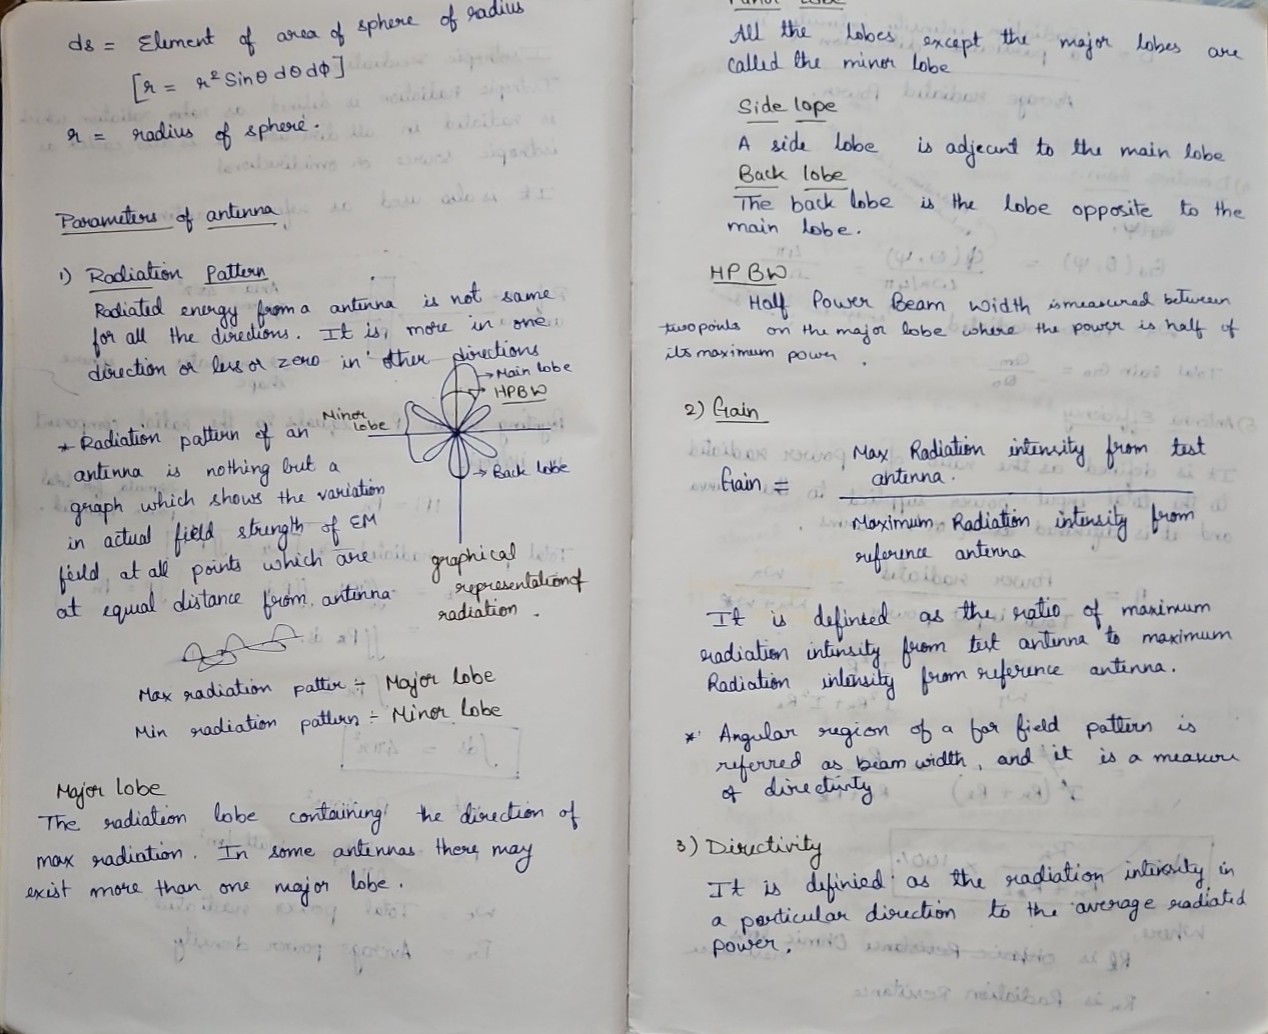 ds = Element of area of sphere of radius
[r = r² Sinθ dθ dφ]
r = radius of sphere.
Parameters of antenna
1) Radiation Pattern
Radiated energy from a antenna is not same
for all the directions. It is, more in one
direction or less or zero in other directions
→ Main lobe
→ HPBW
Minor
lobe
→ Back lobe
graphical
representation of
radiation.
* Radiation pattern of an
antenna is nothing but a
graph which shows the variation
in actual field strength of EM
field at all points which are
at equal distance from antenna
Max radiation patter ÷ Major lobe
Min radiation pattern ÷ Minor lobe
Major lobe
The radiation lobe containing the direction of
max radiation. In some antennas there may
exist more than one major lobe.
Minor Lobe
All the lobes except the major lobes are
called the minor lobe
Side lope
A side lobe is adjecant to the main lobe
Back lobe
The back lobe is the lobe opposite to the
main lobe.
HPBW
Half Power Beam width is measured between
two points on the major lobe where the power is half of
its maximum power.
2) Gain
Gain = Max Radiation intensity from test
antenna.
Maximum Radiation intensity from
reference antenna
It is definted as the ratio of maximum
radiation intensity from test antenna to maximum
Radiation intensity from reference antenna.
* Angular region of a far field pattern is
referred as beam width, and it is a measure
of directivty
3) Directivity
It is definied as the radiation intensity in
a particular direction to the average radiated
power.